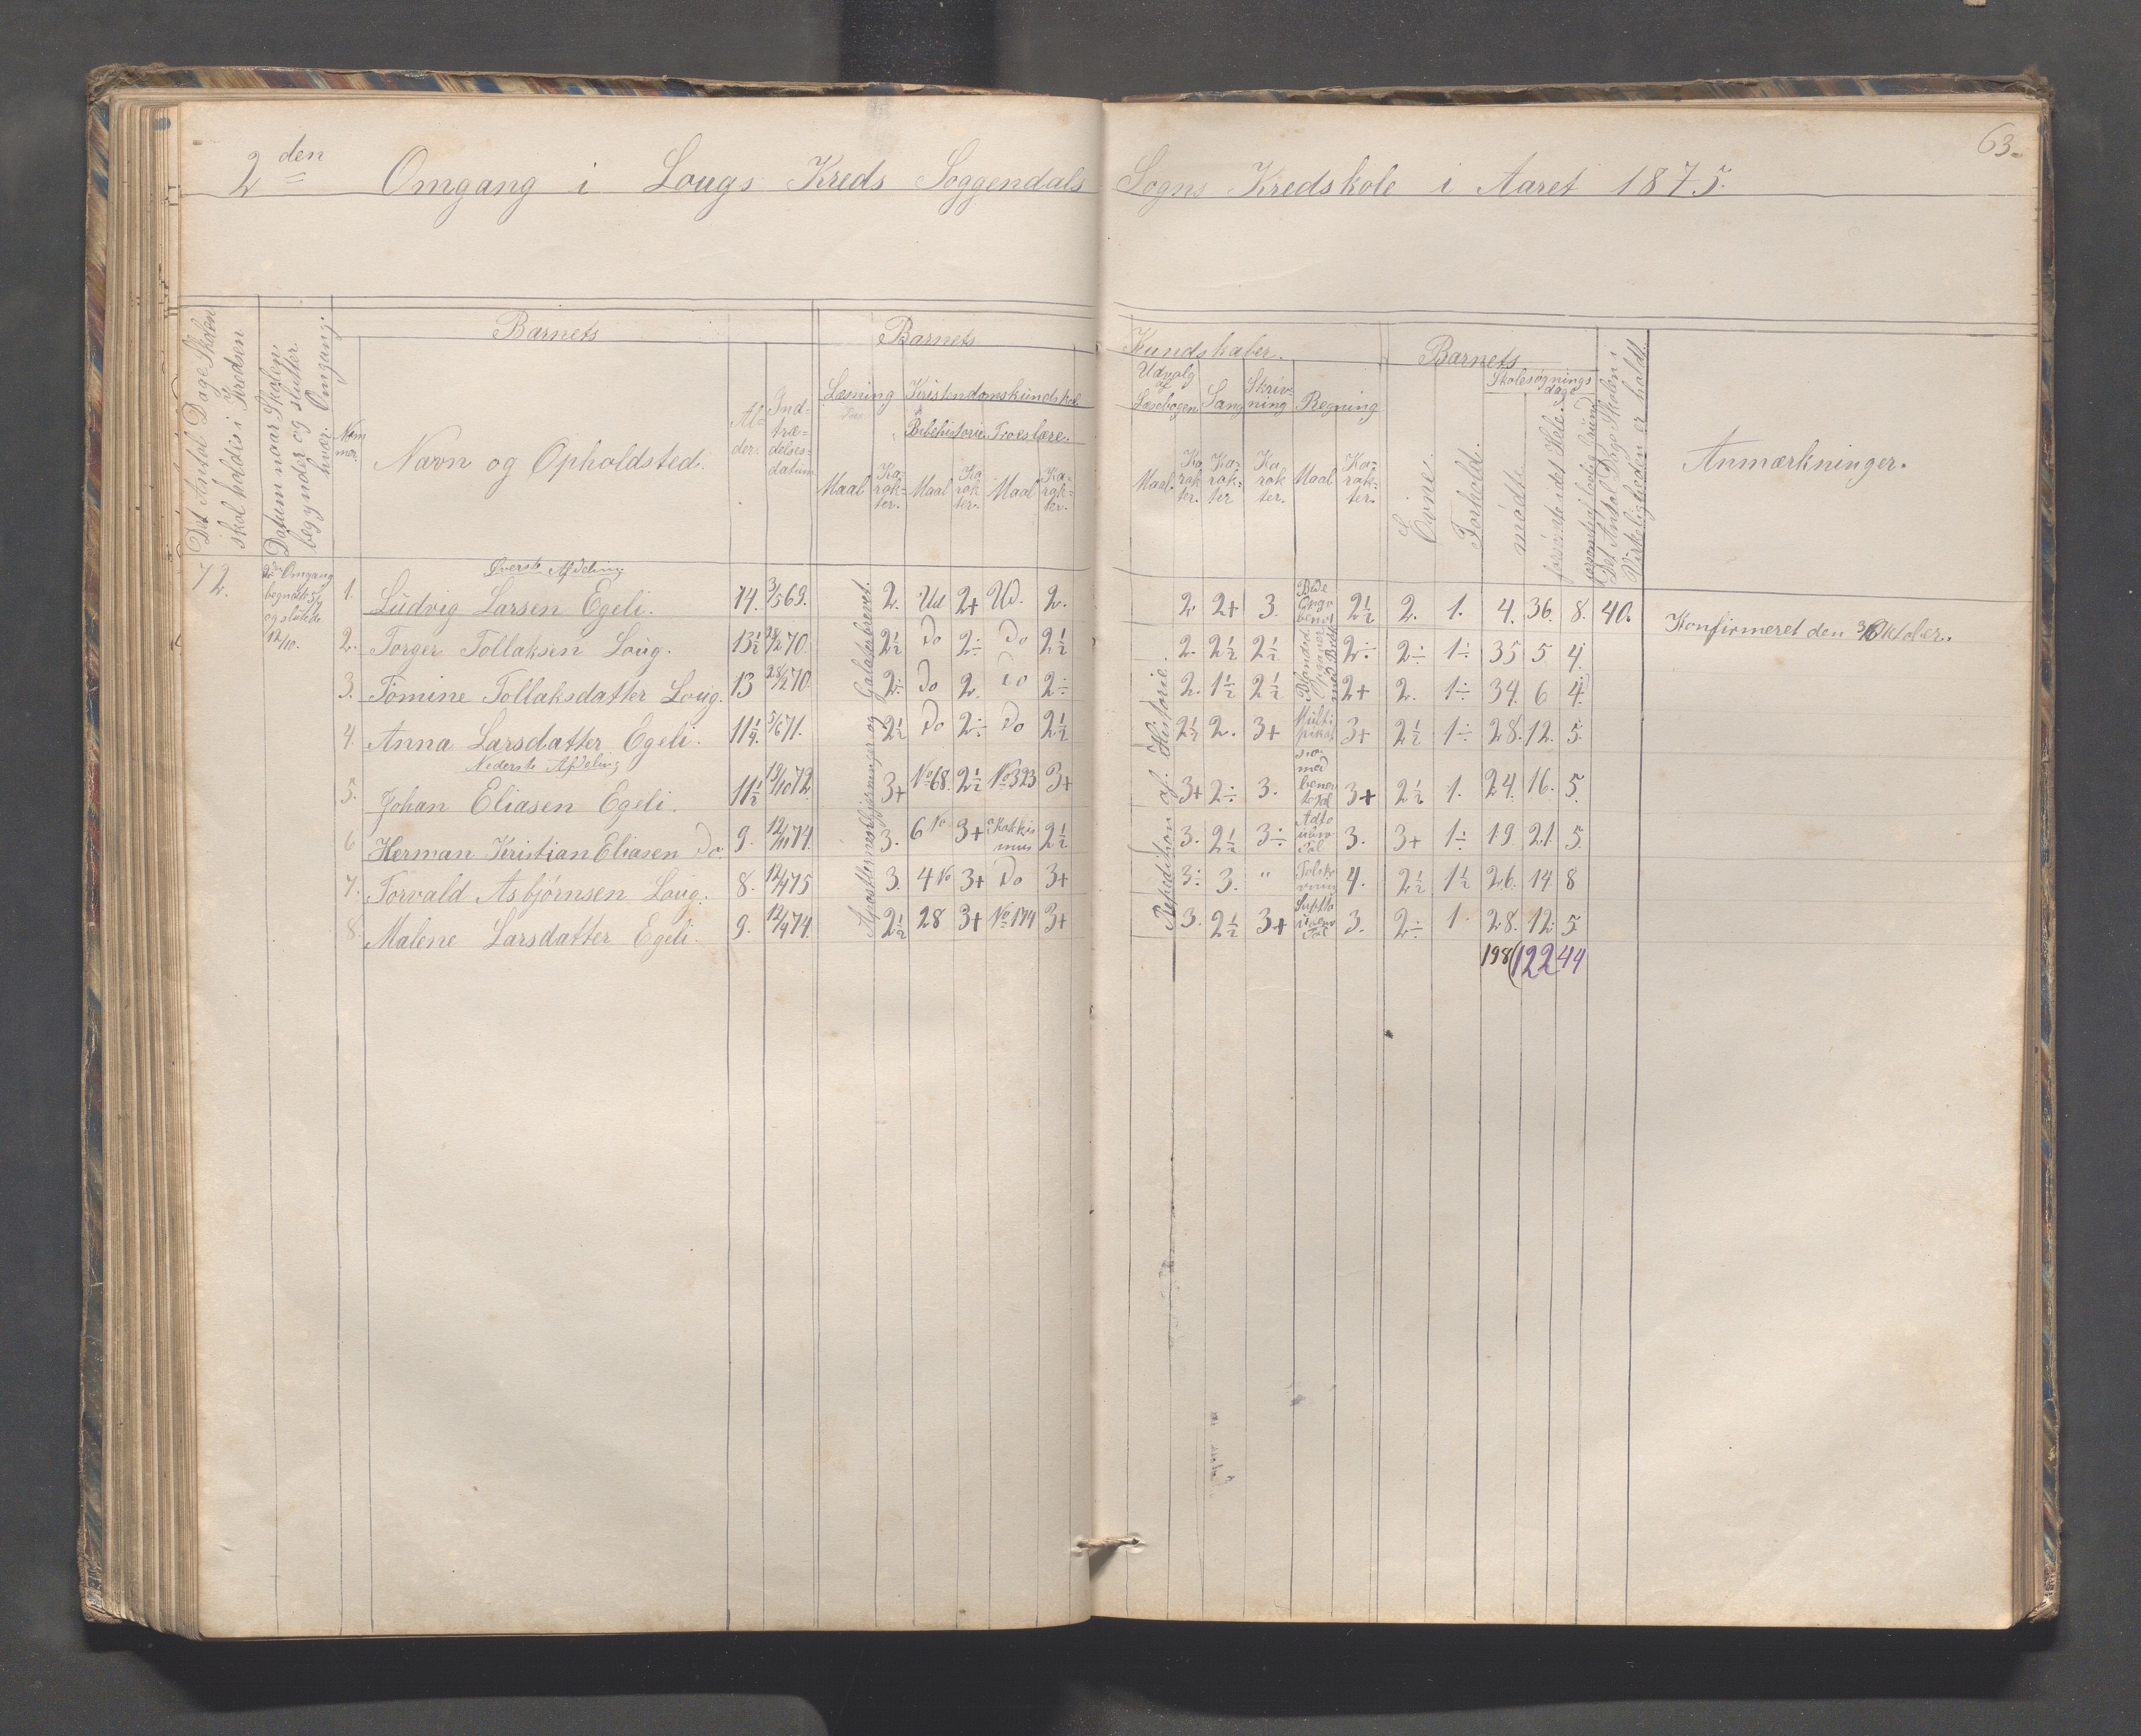 63.
2den Omgang i Lougs Kreds Soggendals Sogns Kredskole i Aaret 1875.
Det Antal Dage Skolen skal holdes i Kredsen
Datum naar Skolen begynder og slutter hver Omgang.
Barnets
Nummer.
Navn og Opholdsted.
Alder.
Indtrædelsesdatum
Barnets Kundskaber.
Læsning
Kristendomskundskab
Bibehistorie Troeslære.
Maal Karakter. Maal Karakter. Maal Karakter.
Udvalg af Læsebogen Sang Skrivning Regning
Maal. Karakter. Karakter Karakter. Maal Karakter.
Barnets
Evne. Forhold.
Skolesøgningsdage
mødte
forsømte det Hele.
forsømte af lovlig Grund
Det Antal Dage Skolen i Virkeligheden er holdt.
Anmærkninger.
72.
2den Omgang begyndte 5/7 og sluttede 12/10.
Apostlernesgjerninger og Galaterbrevet.
Repedition af Historie.
Øverste Afdeling
1. Ludvig Larsen Egeli. 14. 3/5 69. 2. Ud 2+ Ud. 2. 2. 2+ 3. 2½ 2. 1. 4. 36. 8. 40. Konfirmeret den 3/10 Oktober.
2. Torger Tollaksen Loug. 13½ 28/2 70. 2½ Do 2÷ Do 2½ 2. 2½ 2½ Blandet 2÷ 2÷ 1÷ 35 5 4.
3. Tomine Tollaksdatter Loug. 13 28/2 70. 2÷ Do 2. Do 2÷ 2. 1½ 2½ 2+ 2. 1÷ 34. 6 4.
4. Anna Larsdatter Egeli. 11¼. 5/6 71. 2½ Do 2÷ Do 2½ 2½ 2. 3+ 3+ 2½ 1÷ 28. 12. 5.
Nederste Afdeling
5. Johan Eliasen Egeli. 11½ 19/10 72. 3+ No 68. 2½ No 323 3+ 3+ 2÷ 3. 3+ 2½ 1. 24. 16. 5.
6 Herman Kristian Eliasen Do. 9. 12/11 74. 3. 6 No 3+ Katkismus 2½ 3. 2½ 3÷ 3. 3+ 1÷ 19. 21. 5.
7. Torvald Asbjørnsen Loug. 8. 12/4 75 3. 4 No 3+ Do 3+ 3÷ 3. " 4. 2½ 1½ 26. 14. 8
8. Malene Larsdatter Egeli. 9. 12/4 74. 2½ 28 3+ No 174 3+ 3. 2½ 3+ 3. 2÷ 1. 28. 12. 5.
198 122 44